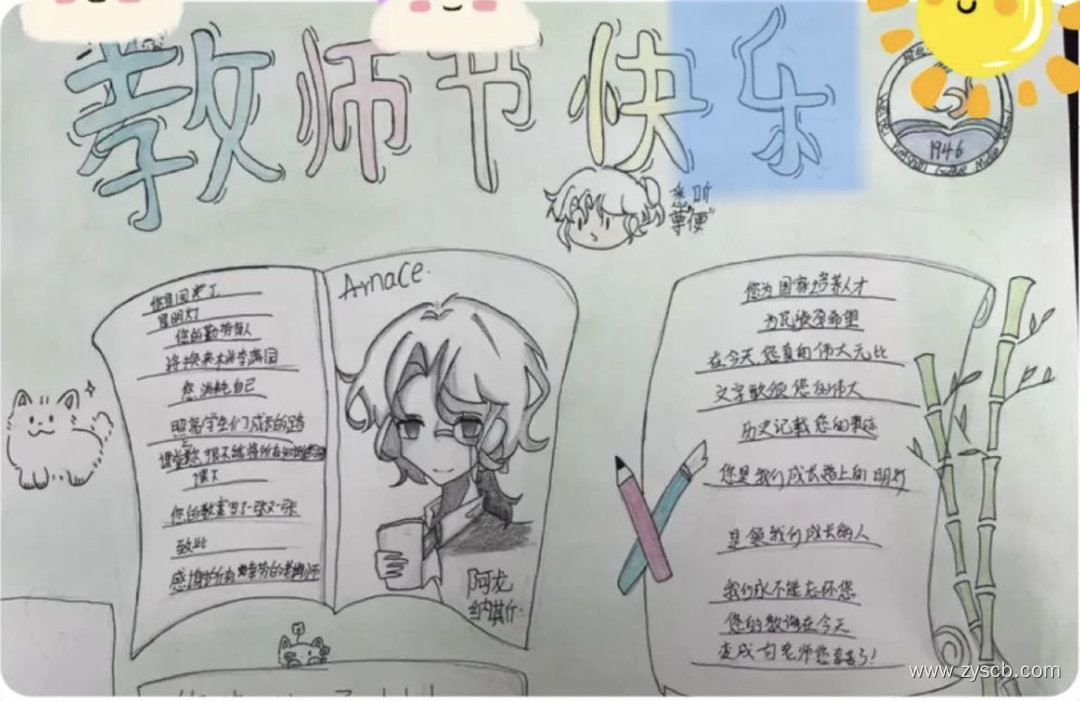 教师节快乐
1946
您听
Arnace.
您是园老丁
是明灯
您的勤劳育人
将换来桃李满园
您消耗自己
照亮学生们成长的路
课堂
课下
您的教案写了一张又一张
致此
感谢所有辛劳的老师
阿尤
纳斯
您为国家培养人才
为民族孕希望
在今天您真的伟大无比
文字歌颂您的伟大
历史记载您的事迹
您是我们成长路上的明灯
是领我们成长的人
我们永不能忘怀您
您的教诲在今天
变成句老师您辛苦了!
www.zyscb.com